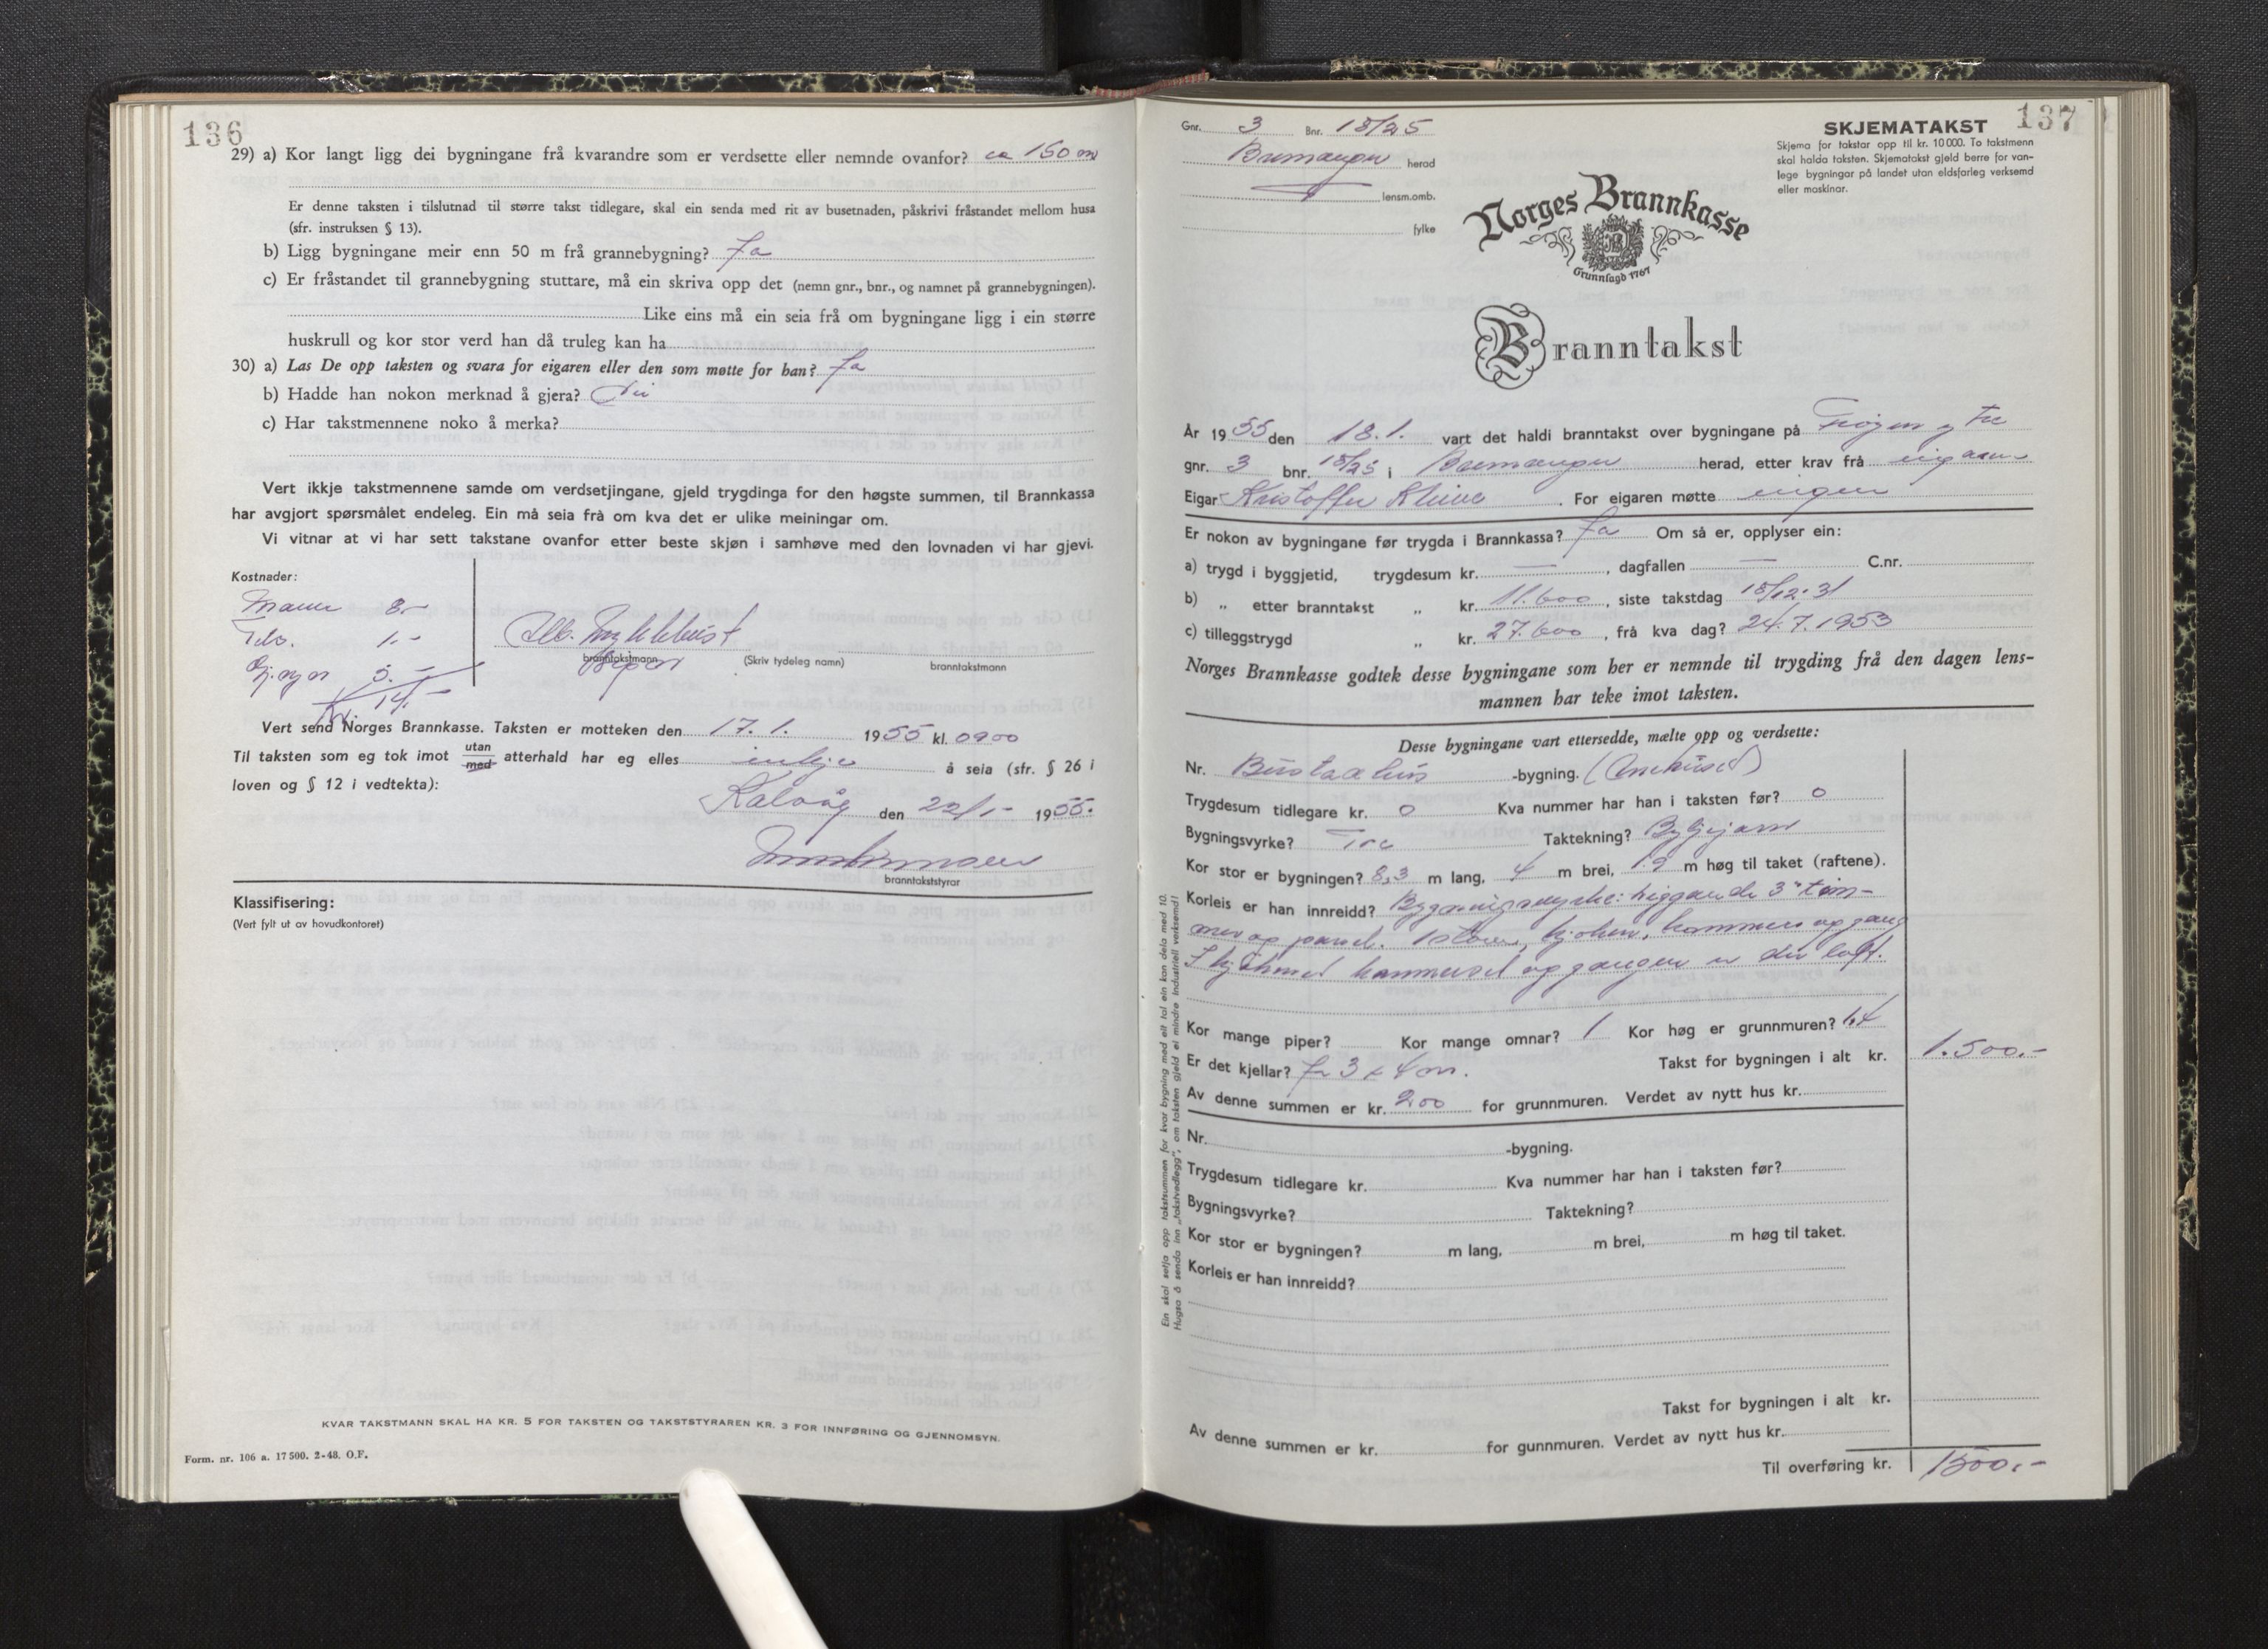 136
29) a) Kor langt ligg dei bygningane frå kvarandre som er verdsette eller nemnde ovanfor? ca 150 m
Er denne taksten i tilslutnad til større takst tidlegare, skal ein senda med rit av busetnaden, påskrivi fråstandet mellom husa
(sfr. instruksen § 13).
b) Ligg bygningane meir enn 50 m frå grannebygning? Ja
c) Er fråstandet til grannebygning stuttare, må ein skriva opp det (nemn gnr., bnr., og namnet på grannebygningen).
Like eins må ein seia frå om bygningane ligg i ein større
huskrull og kor stor verd han då truleg kan ha
30) a) Las De opp taksten og svara for eigaren eller den som møtte for han? Ja
b) Hadde han nokon merknad å gjera? Nei
c) Har takstmennene noko å merka?
Vert ikkje takstmennene samde om verdsetjingane, gjeld trygdinga for den høgste summen, til Brannkassa
har avgjort spørsmålet endeleg. Ein må seia frå om kva det er ulike meiningar om.
Vi vitnar at vi har sett takstane ovanfor etter beste skjøn i samhøve med den lovnaden vi har gjevi.
Kostnader:
8.-
1.-
5.-
Kr. 14.-
Alb. Myklebust
branntakstmann
(Skriv tydeleg namn)
branntakstmann
Vert send Norges Brannkasse. Taksten er motteken den 17.1. 1955 kl. 0900
Til taksten som eg tok imot utan med atterhald har eg elles inkje å seia (sfr. § 26 i
loven og § 12 i vedtekta):
Kalvåg den 22/1- 1955.
branntakststyrar
Klassifisering:
(Vert fylt ut av hovudkontoret)
KVAR TAKSTMANN SKAL HA KR. 5 FOR TAKSTEN OG TAKSTSTYRAREN KR. 3 FOR INNFØRING OG GJENNOMSYN.
Form. nr. 106 a. 17 500. 2-48. O.F.
137
Gnr. 3 Bnr. 18/25
Bremanger herad
lensm.omb.
fylke
SKJEMATAKST
Skjema for takstar opp til kr. 10 000. To takstmenn
skal halda taksten. Skjematakst gjeld berre for van-
lege bygningar på landet utan eldsfarleg verksemd
eller maskinar.
Norges Brannkasse
Grunnlagd 1767
Branntakst
År 1955 den 18.1. vart det haldi branntakst over bygningane på
gnr. 3 bnr. 18/25 i Bremanger herad, etter krav frå eigaren
Eigar Kristoffer Kleive. For eigaren møtte eigen
Er nokon av bygningane før trygda i Brannkassa? Ja Om så er, opplyser ein:
a) trygd i byggjetid, trygdesum kr. — , dagfallen — C.nr.
b) „ etter branntakst „ kr. 11.600, siste takstdag 18/12.31
c) tilleggstrygd „ kr. 27.600, frå kva dag? 24.7.1953
Norges Brannkasse godtek desse bygningane som her er nemnde til trygding frå den dagen lens-
mannen har teke imot taksten.
Desse bygningane vart ettersedde, mælte opp og verdsette:
Nr. -bygning.
Trygdesum tidlegare kr. 0 Kva nummer har han i taksten før? 0
Bygningsvyrke? Tre Taktekning? Bylgjejarn
Kor stor er bygningen? 8,3 m lang, 4 m brei, 1.9 m høg til taket (raftene).
Korleis er han innreidd? Bygningsvyrke: liggande 3" tøm-
mer og panel. 1 stove, kjøken, kammers og gang
I kammerset og gangen er der loft.
Kor mange piper? Kor mange omnar? 1 Kor høg er grunnmuren? 1.4
Er det kjellar? Ja 3 x 4 m. Takst for bygningen i alt kr. 1.500.-
Av denne summen er kr. 200 for grunnmuren. Verdet av nytt hus kr.
Nr. -bygning.
Trygdesum tidlegare kr. Kva nummer har han i taksten før?
Bygningsvyrke? Taktekning?
Kor stor er bygningen? m lang, m brei, m høg til taket.
Korleis er han innreidd?
Takst for bygningen i alt kr.
Av denne summen er kr. for gunnmuren. Verdet av nytt hus kr.
Til overføring kr. 1500.-
Ein skal setja opp takstsummen for kvar bygning med eit tal ein kan dela med 10.
Hugsa å senda inn „takstvedlegg", om taksten gjeld ei mindre industriell verksemd!